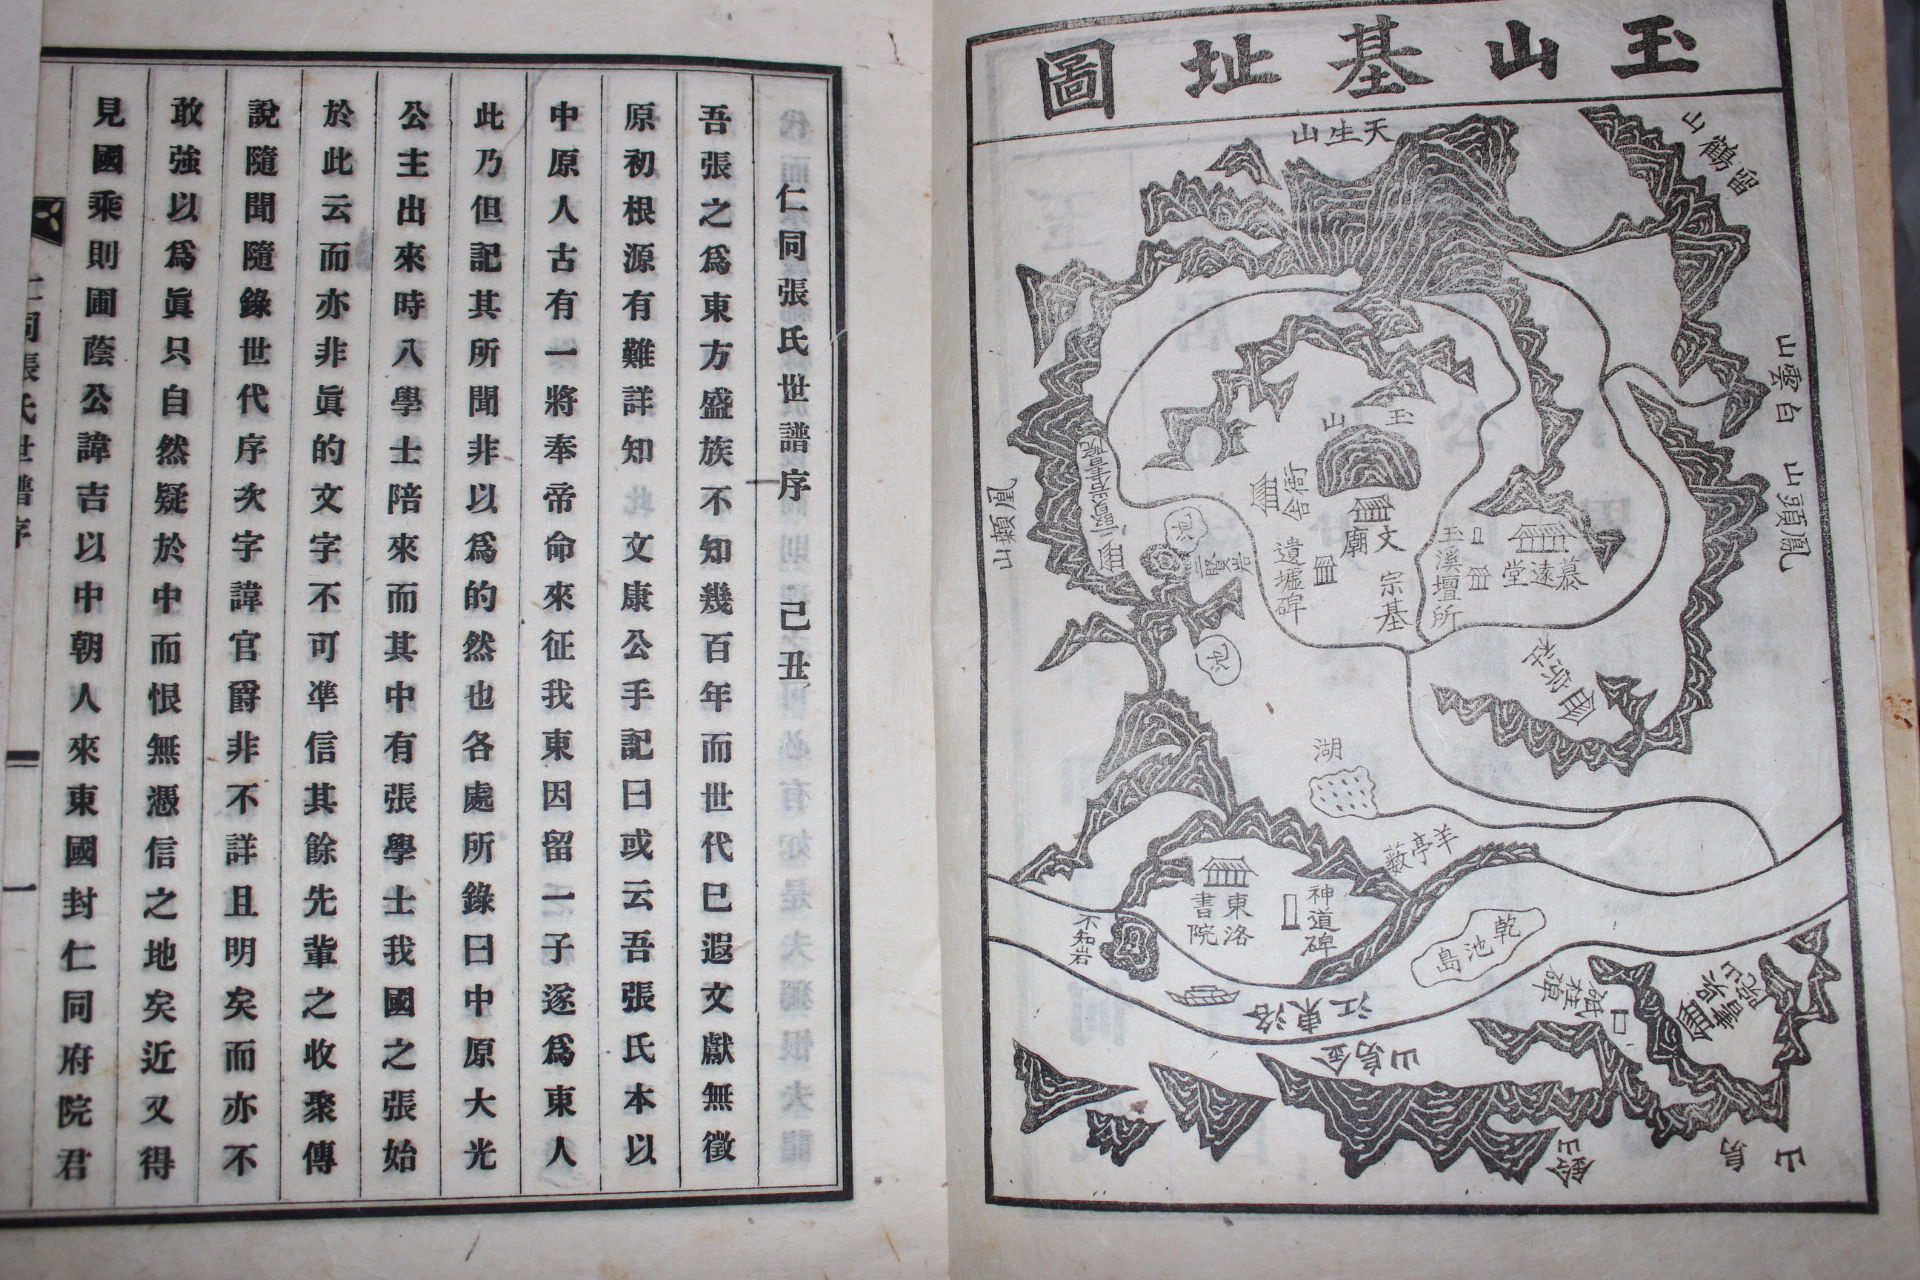 玉山基址圖
天生山
留鶴山
白雲山
鳳頭山
凰顙山
玉山
衙舍
文廟
宗基
遺墟碑
三賢岩
池
池
玉溪壇所
慕遠堂
宗社
湖
羊亭藪
東洛書院
神道碑
不知岩
乾池島
洛東江
金烏山
砥柱碑
吳山書院
鈴山
烏山
仁同張氏世譜序 己丑
吾張之爲東方盛族不知幾百年而世代已遐文獻無徵
原初根源有難詳知此文康公手記曰或云吾張氏本以
中原人古有一將奉帝命來征我東因留一子遂爲東人
此乃但記其所聞非以爲的然也各處所錄曰中原大光
公主出來時八學士陪來而其中有張學士我國之張始
於此云而亦非眞的文字不可準信其餘先輩之收聚傳
說隨聞隨錄世代序次字諱官爵非不詳且明矣而亦不
敢強以爲眞只自然疑於中而恨無憑信之地矣近又得
見國乘則圃蔭公諱吉以中朝人來東國封仁同府院君
仁同張氏世譜序
一